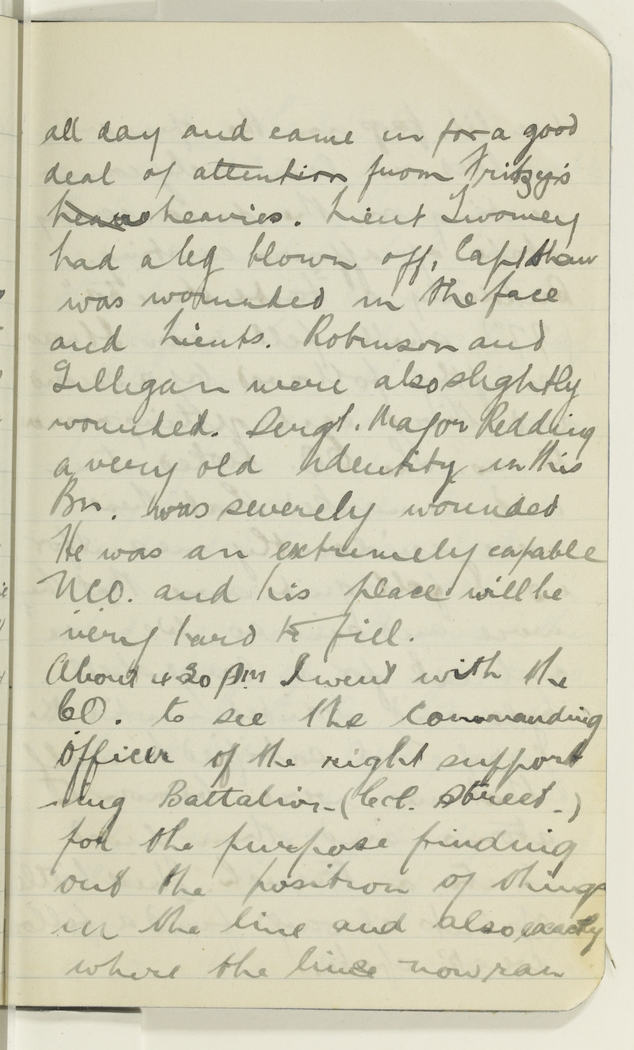 all day and came in for a good
deal of attention from Fritzy's
heavies. Lieut Twomey
had a leg blown off, Capt Shaw
was wounded in the face
and Lieuts. Robinson and
Gilligan were also slightly
wounded. Sergt. Major Redding
a very old identity in this
Bn. was severely wounded
He was an extremely capable
NCO. and his place will be
very hard to fill.
About 4.30 pm I went with the
CO. to see the Commanding
Officer of the right support
-ing Battalion - (Col. Street -)
for the purpose finding
out the position of things
in the line and also exactly
where the line now ran